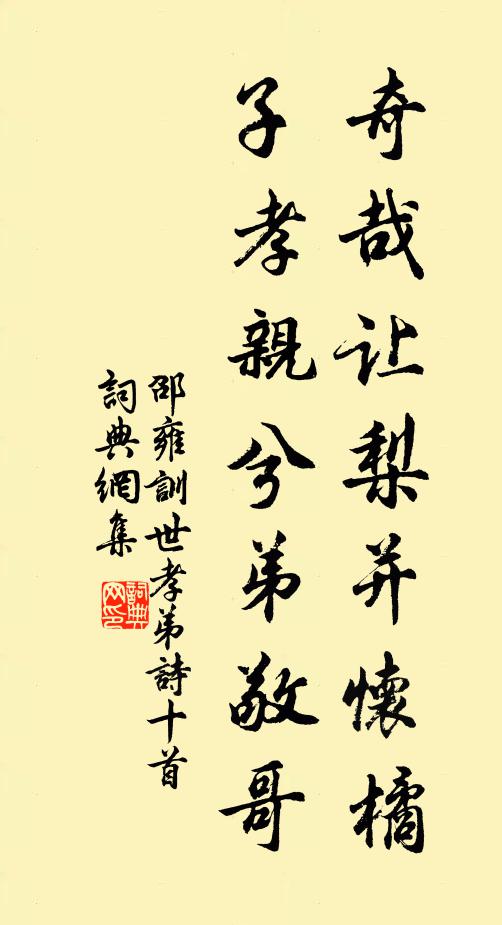 奇哉让梨并懷橘
子孝親兮弟敬哥
邵雍訓世孝弟詩十首
詞典網集
詞典网印